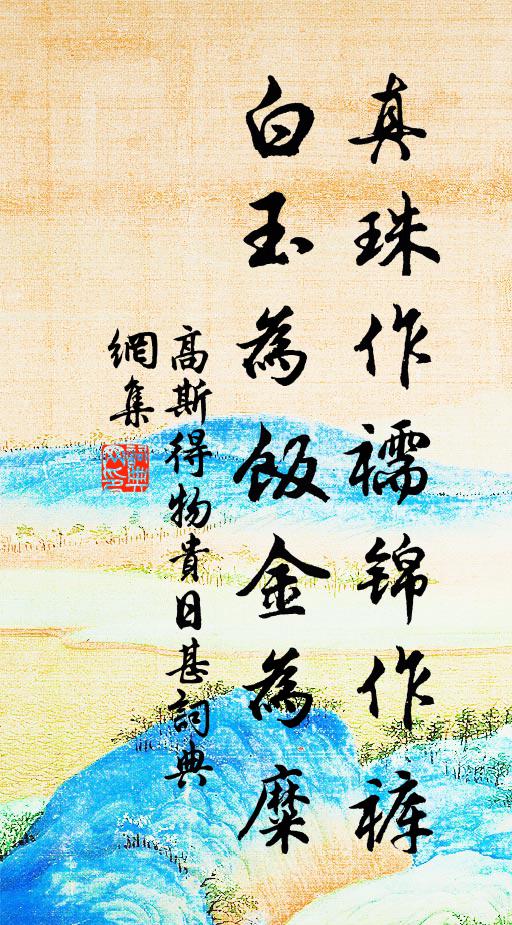 真珠作襦錦作褲
白玉為飯金為糜
高斯得物貴日甚詞典
網集